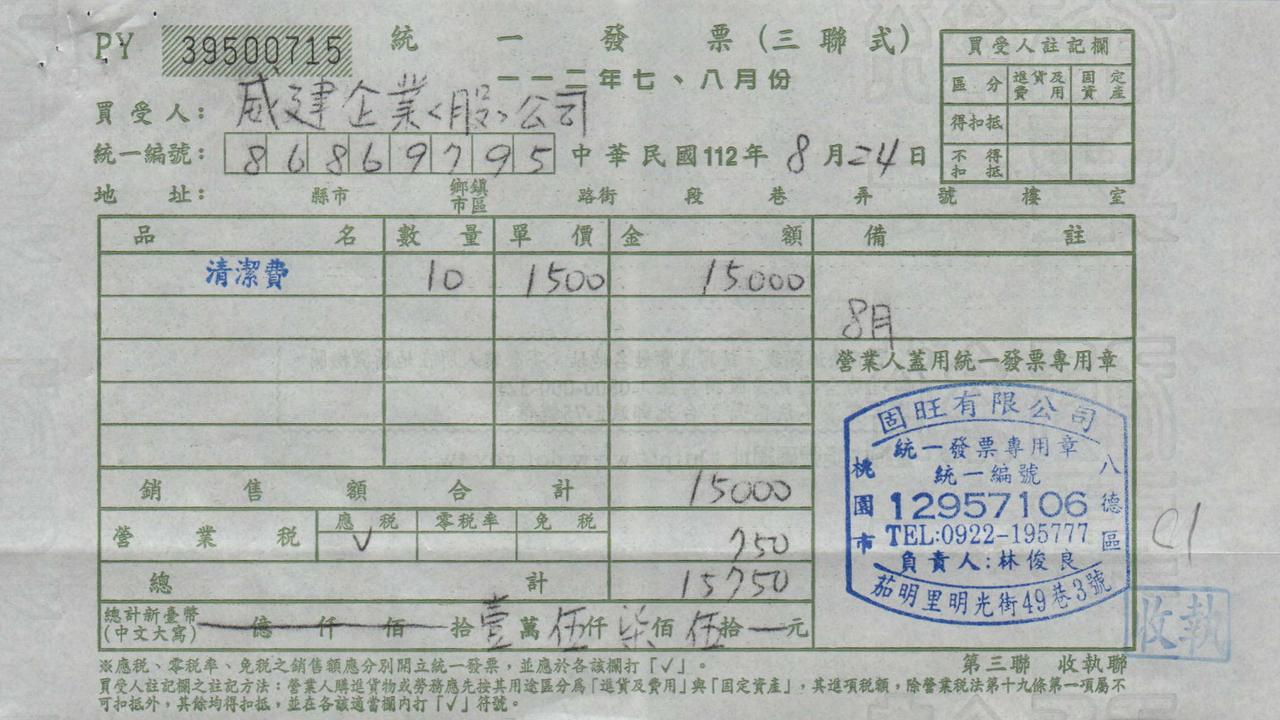 PY 39500715 統一發票(三聯式)
一一二年七、八月份
買受人: 威建企業<股>公司
統一編號: 86869795 中華民國112年8月24日
地址: 縣市 鄉鎮市區 路街 段 巷 弄 號 樓 室
買受人註記欄
區分 進貨及費用 固定資產
得扣抵
不得扣抵
品名 數量 單價 金額 備註
清潔費 10 1500 15000
8月
營業人蓋用統一發票專用章
銷售額合計 15000
營業稅 應稅 零稅率 免稅
V 750
總計 15750
總計新臺幣(中文大寫) 億仟佰拾壹萬伍仟柒佰伍拾元
固旺有限公司
統一發票專用章
統一編號
桃園市 八德區
12957106
TEL:0922-195777
負責人:林俊良
茄明里明光街49巷3號
C1
收執
※應稅、零稅率、免稅之銷售額應分別開立統一發票,並應於各該欄打「✓」。
第三聯 收執聯
買受人註記欄之註記方法:營業人購進貨物或勞務應先按其用途區分為「進貨及費用」與「固定資產」,其進項稅額,除營業稅法第十九條第一項屬不
可扣抵外,其餘均得扣抵,並在各該適當欄內打「✓」符號。